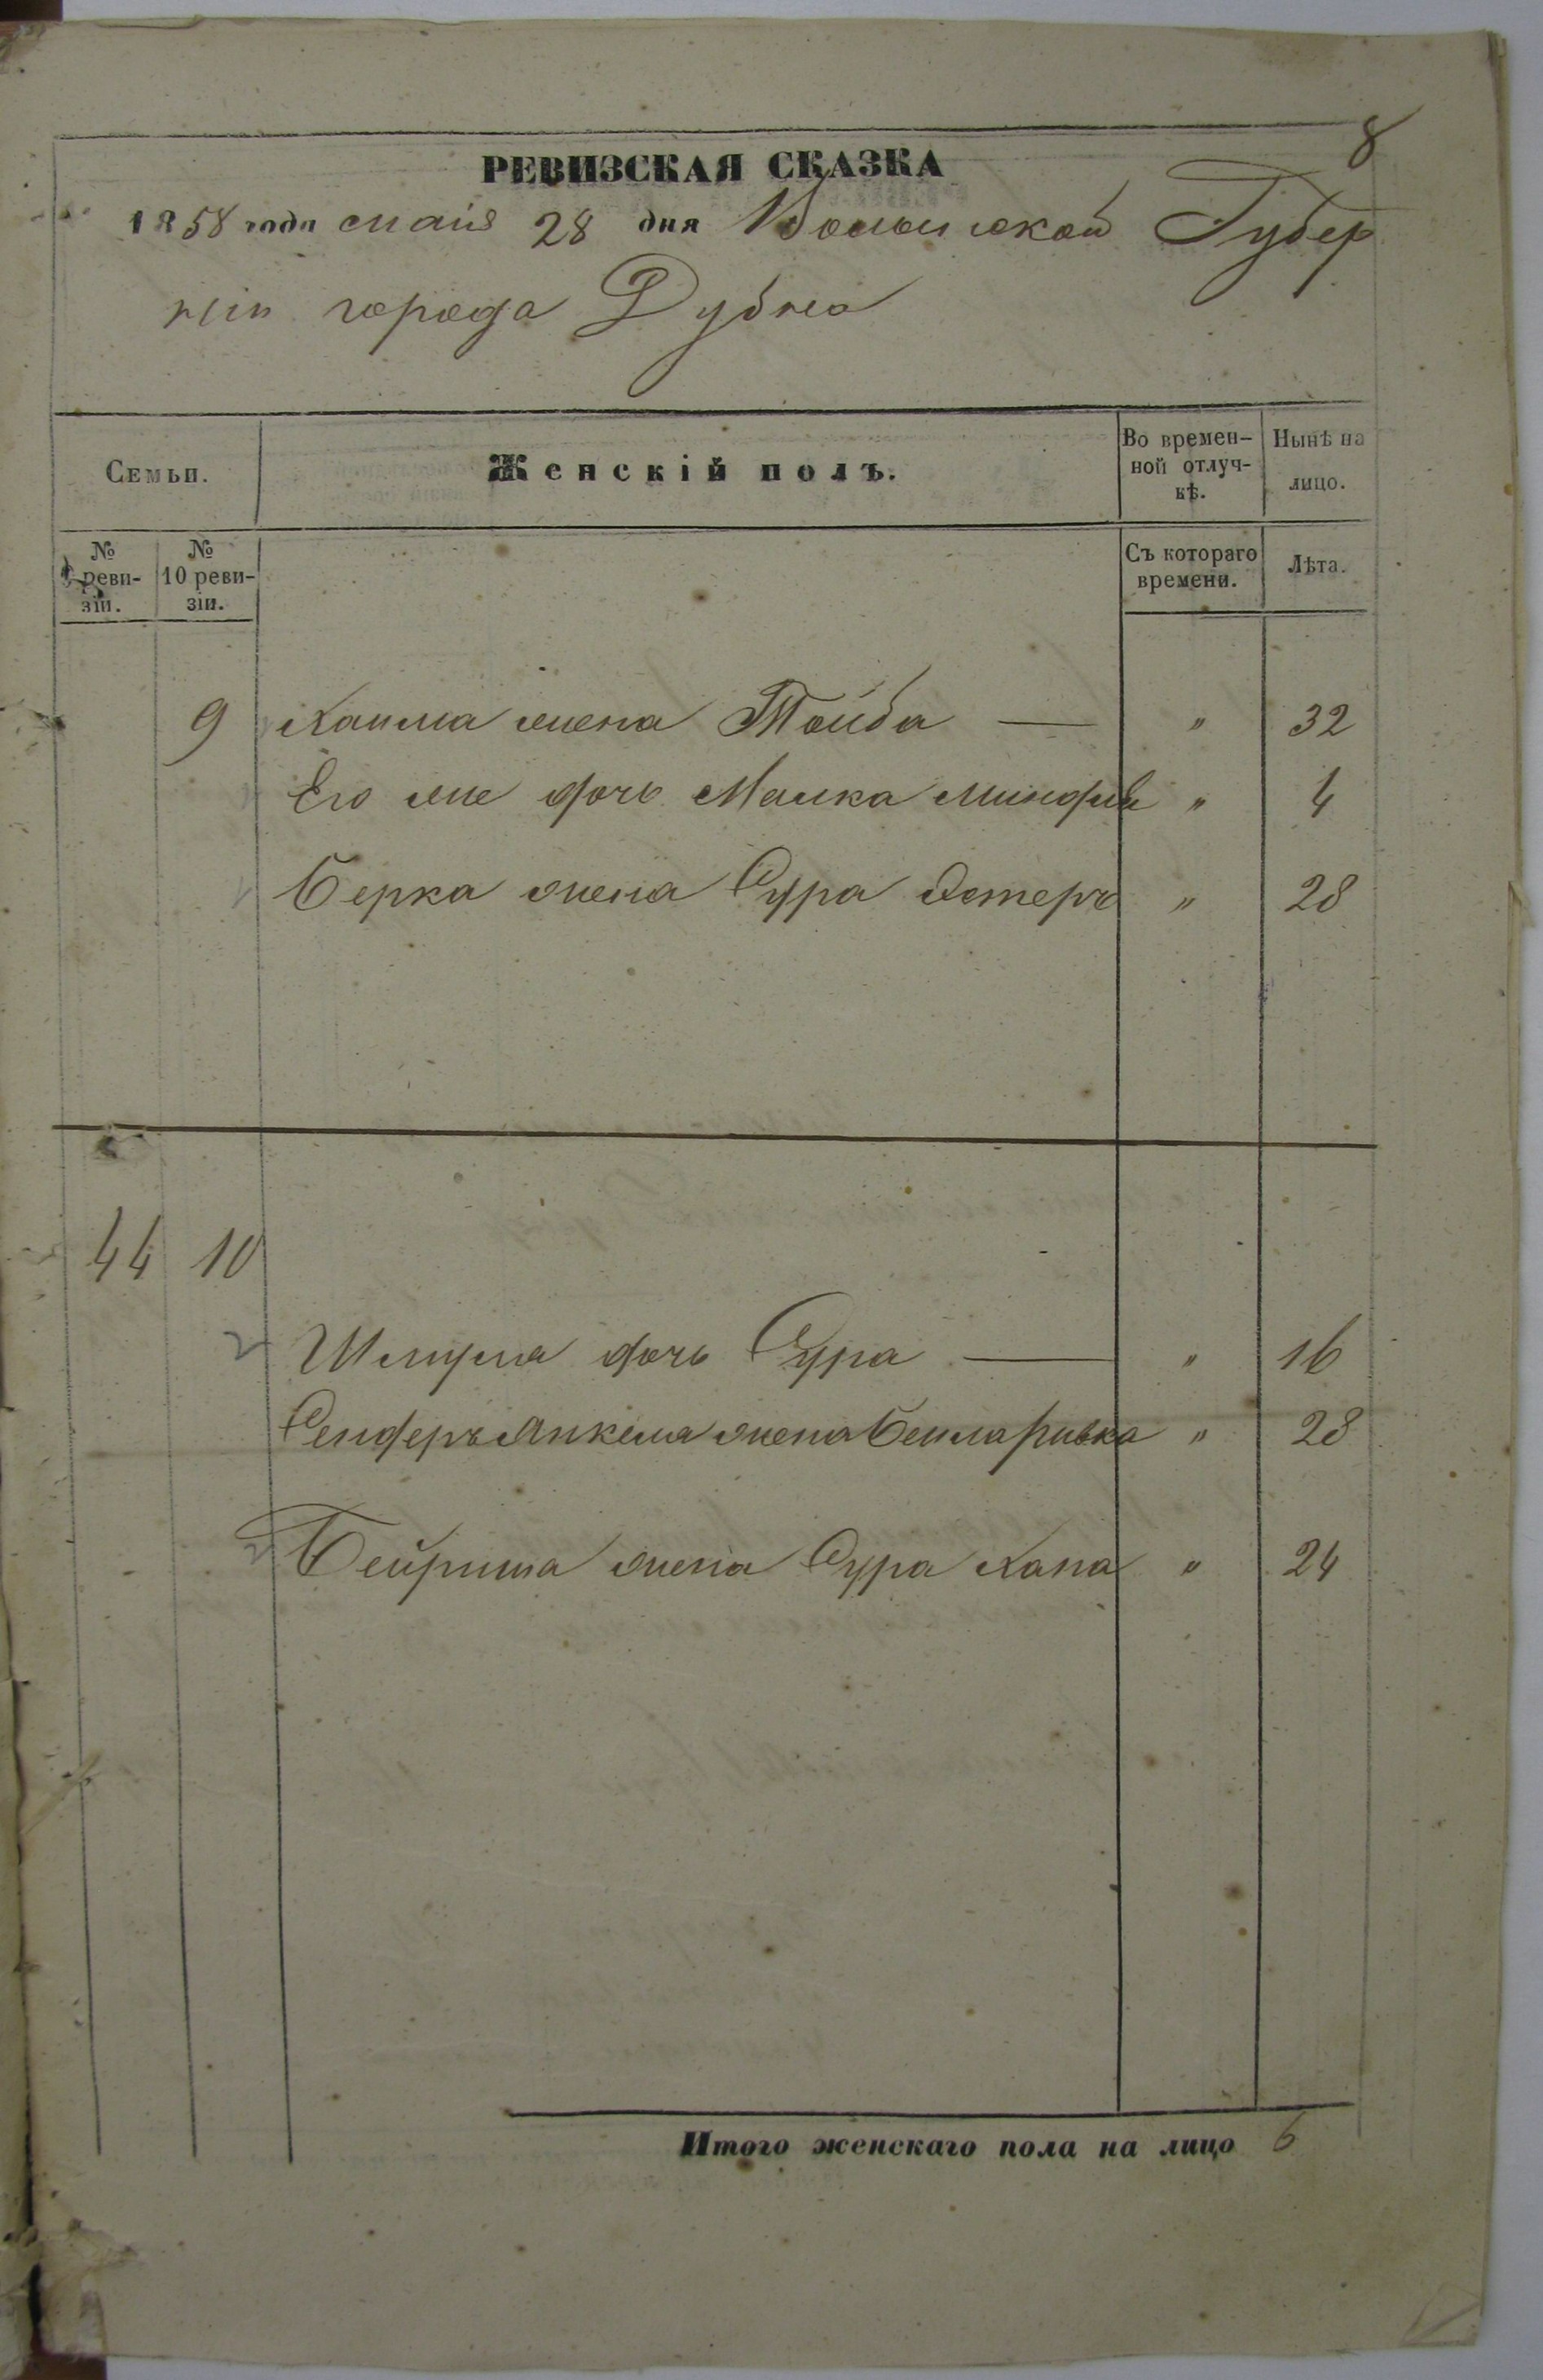 8
РЕВИЗСКАЯ СКАЗКА
1858 года маія 28 дня Волынской Губер
ніи города Дубна
Семьи.
Женскій полъ.
Во времен-
ной отлуч-
кѣ.
Нынѣ на
лицо.
№
реви-
зіи.
№
10 реви-
зіи.
Съ котораго
времени.
Лѣта.
9 Хаима жена Тойба — " 32
Его же дочь Малка Миндля " 4
Берка жена Сура Эстеръ " 28
44 10
Шмуля дочь Сура — " 16
Сендеръ Янкеля жена Бейла Ривка " 28
Бейриша жена Сура Хана " 24
Итого женскаго пола на лицо 6